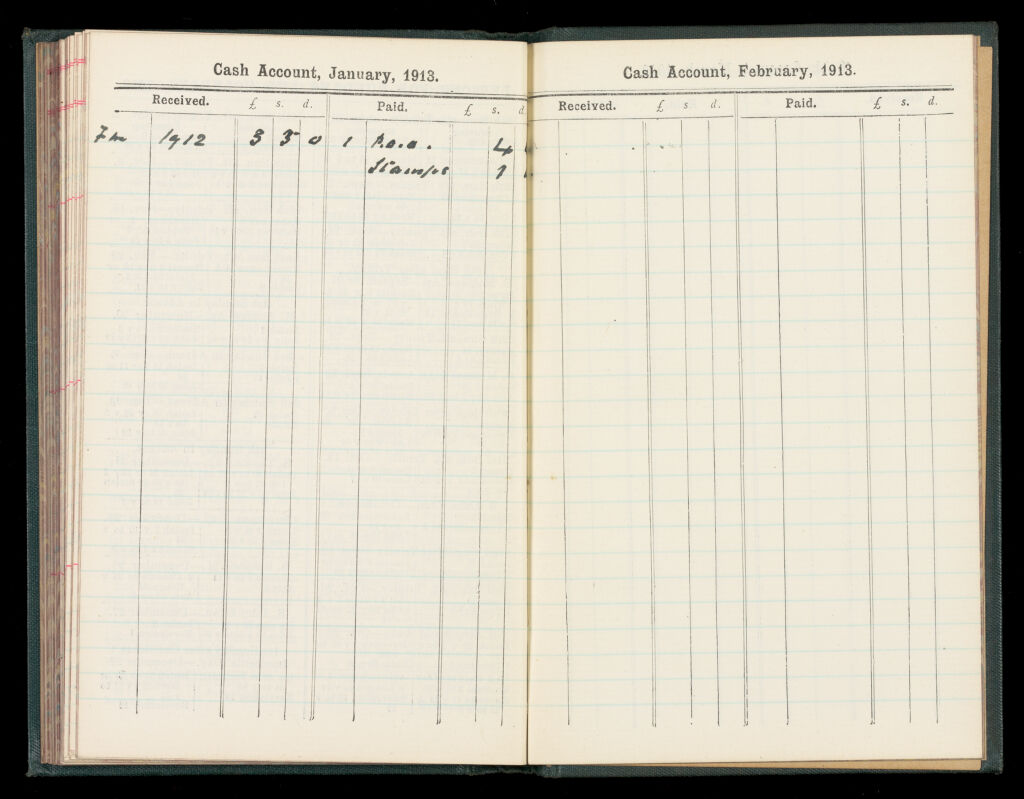 Cash Account, January, 1913.
Received. £ s. d. Paid. £ s. d.
Fm 1912 3 5 0 1 P.O.O. 4
Stamps 1
Cash Account, February, 1913.
Received. £ s. d. Paid. £ s. d.